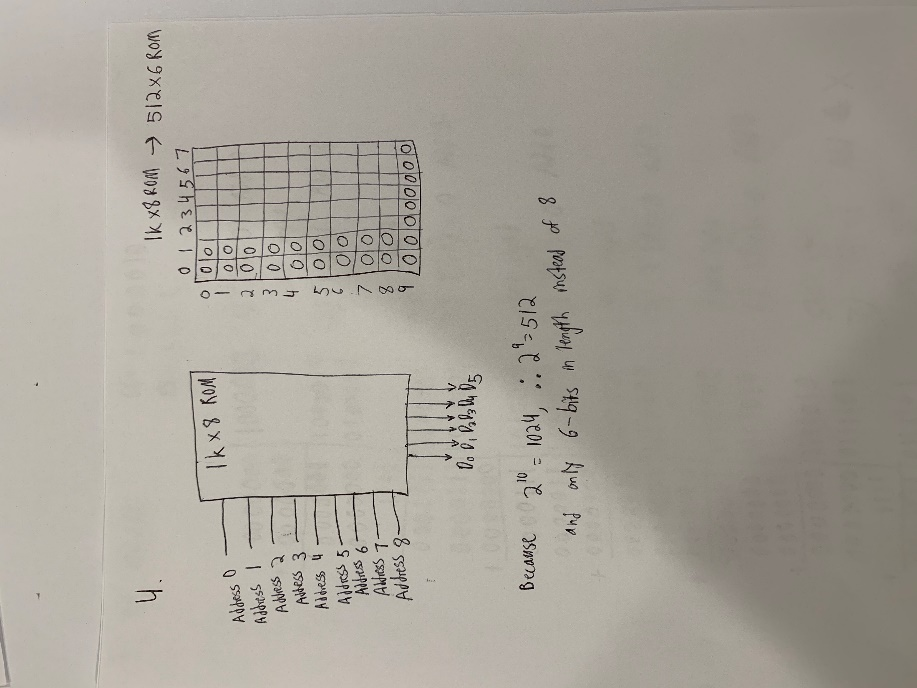 4.
1k x8 ROM → 512x6 ROM
1k x 8 ROM
Address 0
Address 1
Address 2
Address 3
Address 4
Address 5
Address 6
Address 7
Address 8
D0 D1 D2 D3 D4 D5
0 1 2 3 4 5 6 7
0 0 0
1 0 0
2 0 0
3 0 0
4 0 0
5 0 0
6 0 0
7 0 0
8 0 0
9 0 0 0 0 0 0 0 0
Because 2^10 = 1024, ∴ 2^9 = 512
and only 6-bits in length instead of 8